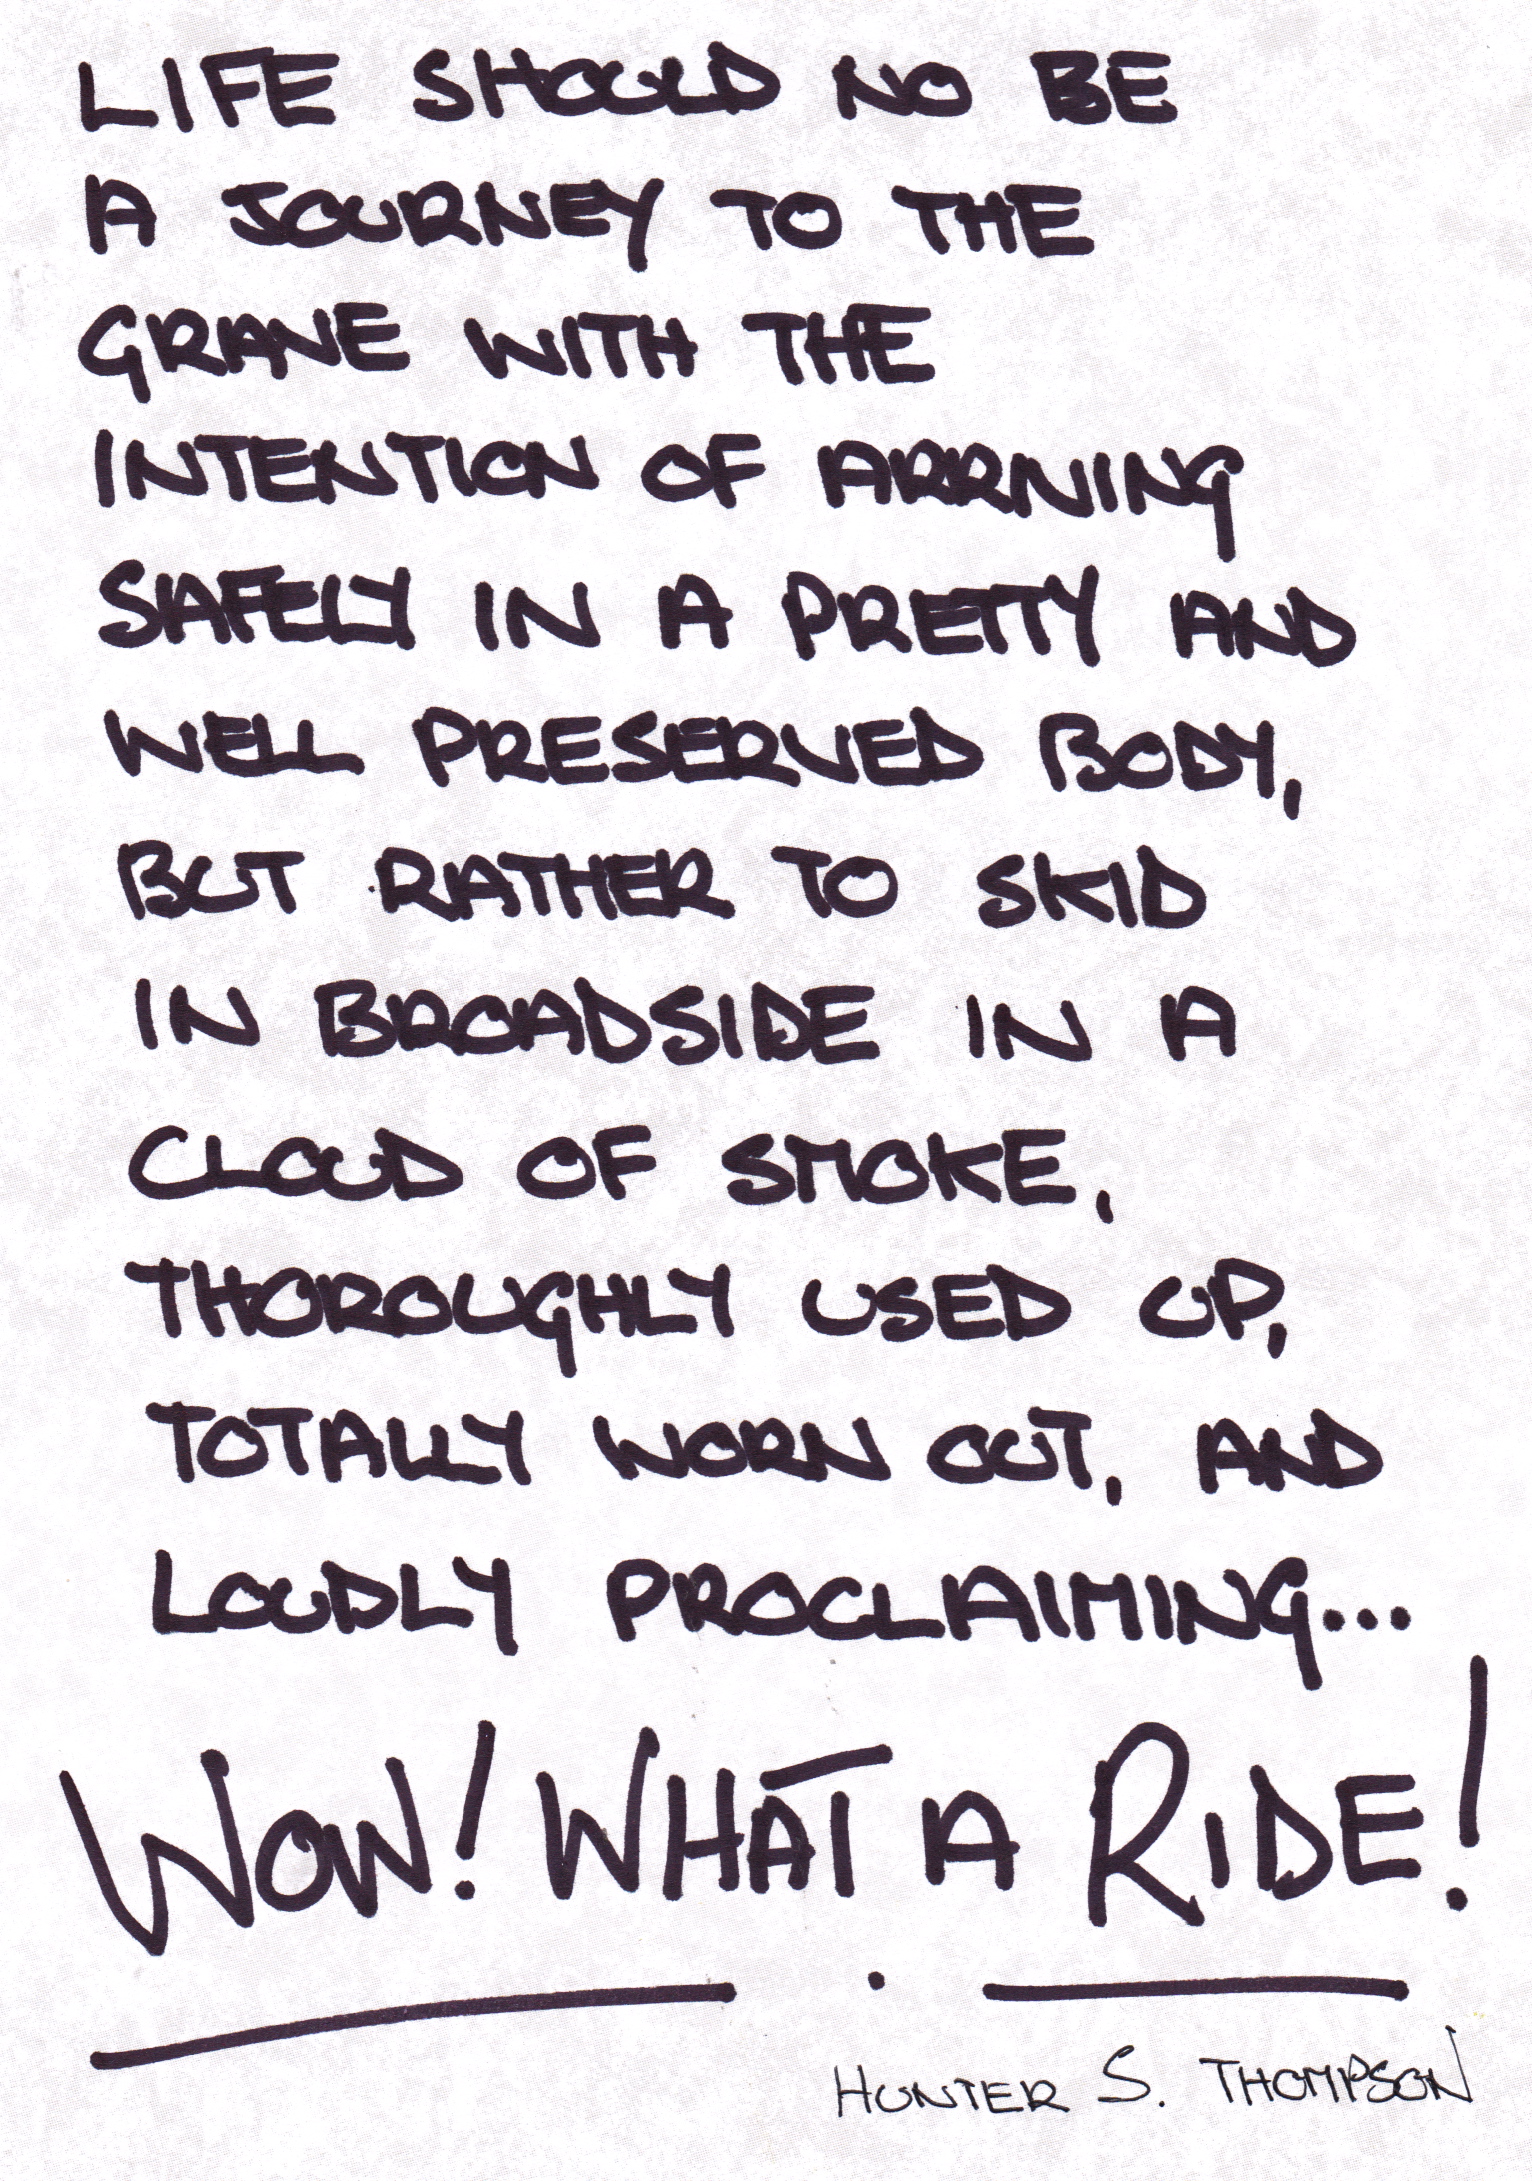 LIFE SHOULD NO BE
A JOURNEY TO THE
GRAVE WITH THE
INTENTION OF ARRIVING
SAFELY IN A PRETTY AND
WELL PRESERVED BODY,
BUT RATHER TO SKID
IN BROADSIDE IN A
CLOUD OF SMOKE,
THOROUGHLY USED UP,
TOTALLY WORN OUT, AND
LOUDLY PROCLAIMING...
WOW! WHAT A RIDE!
HUNTER S. THOMPSON